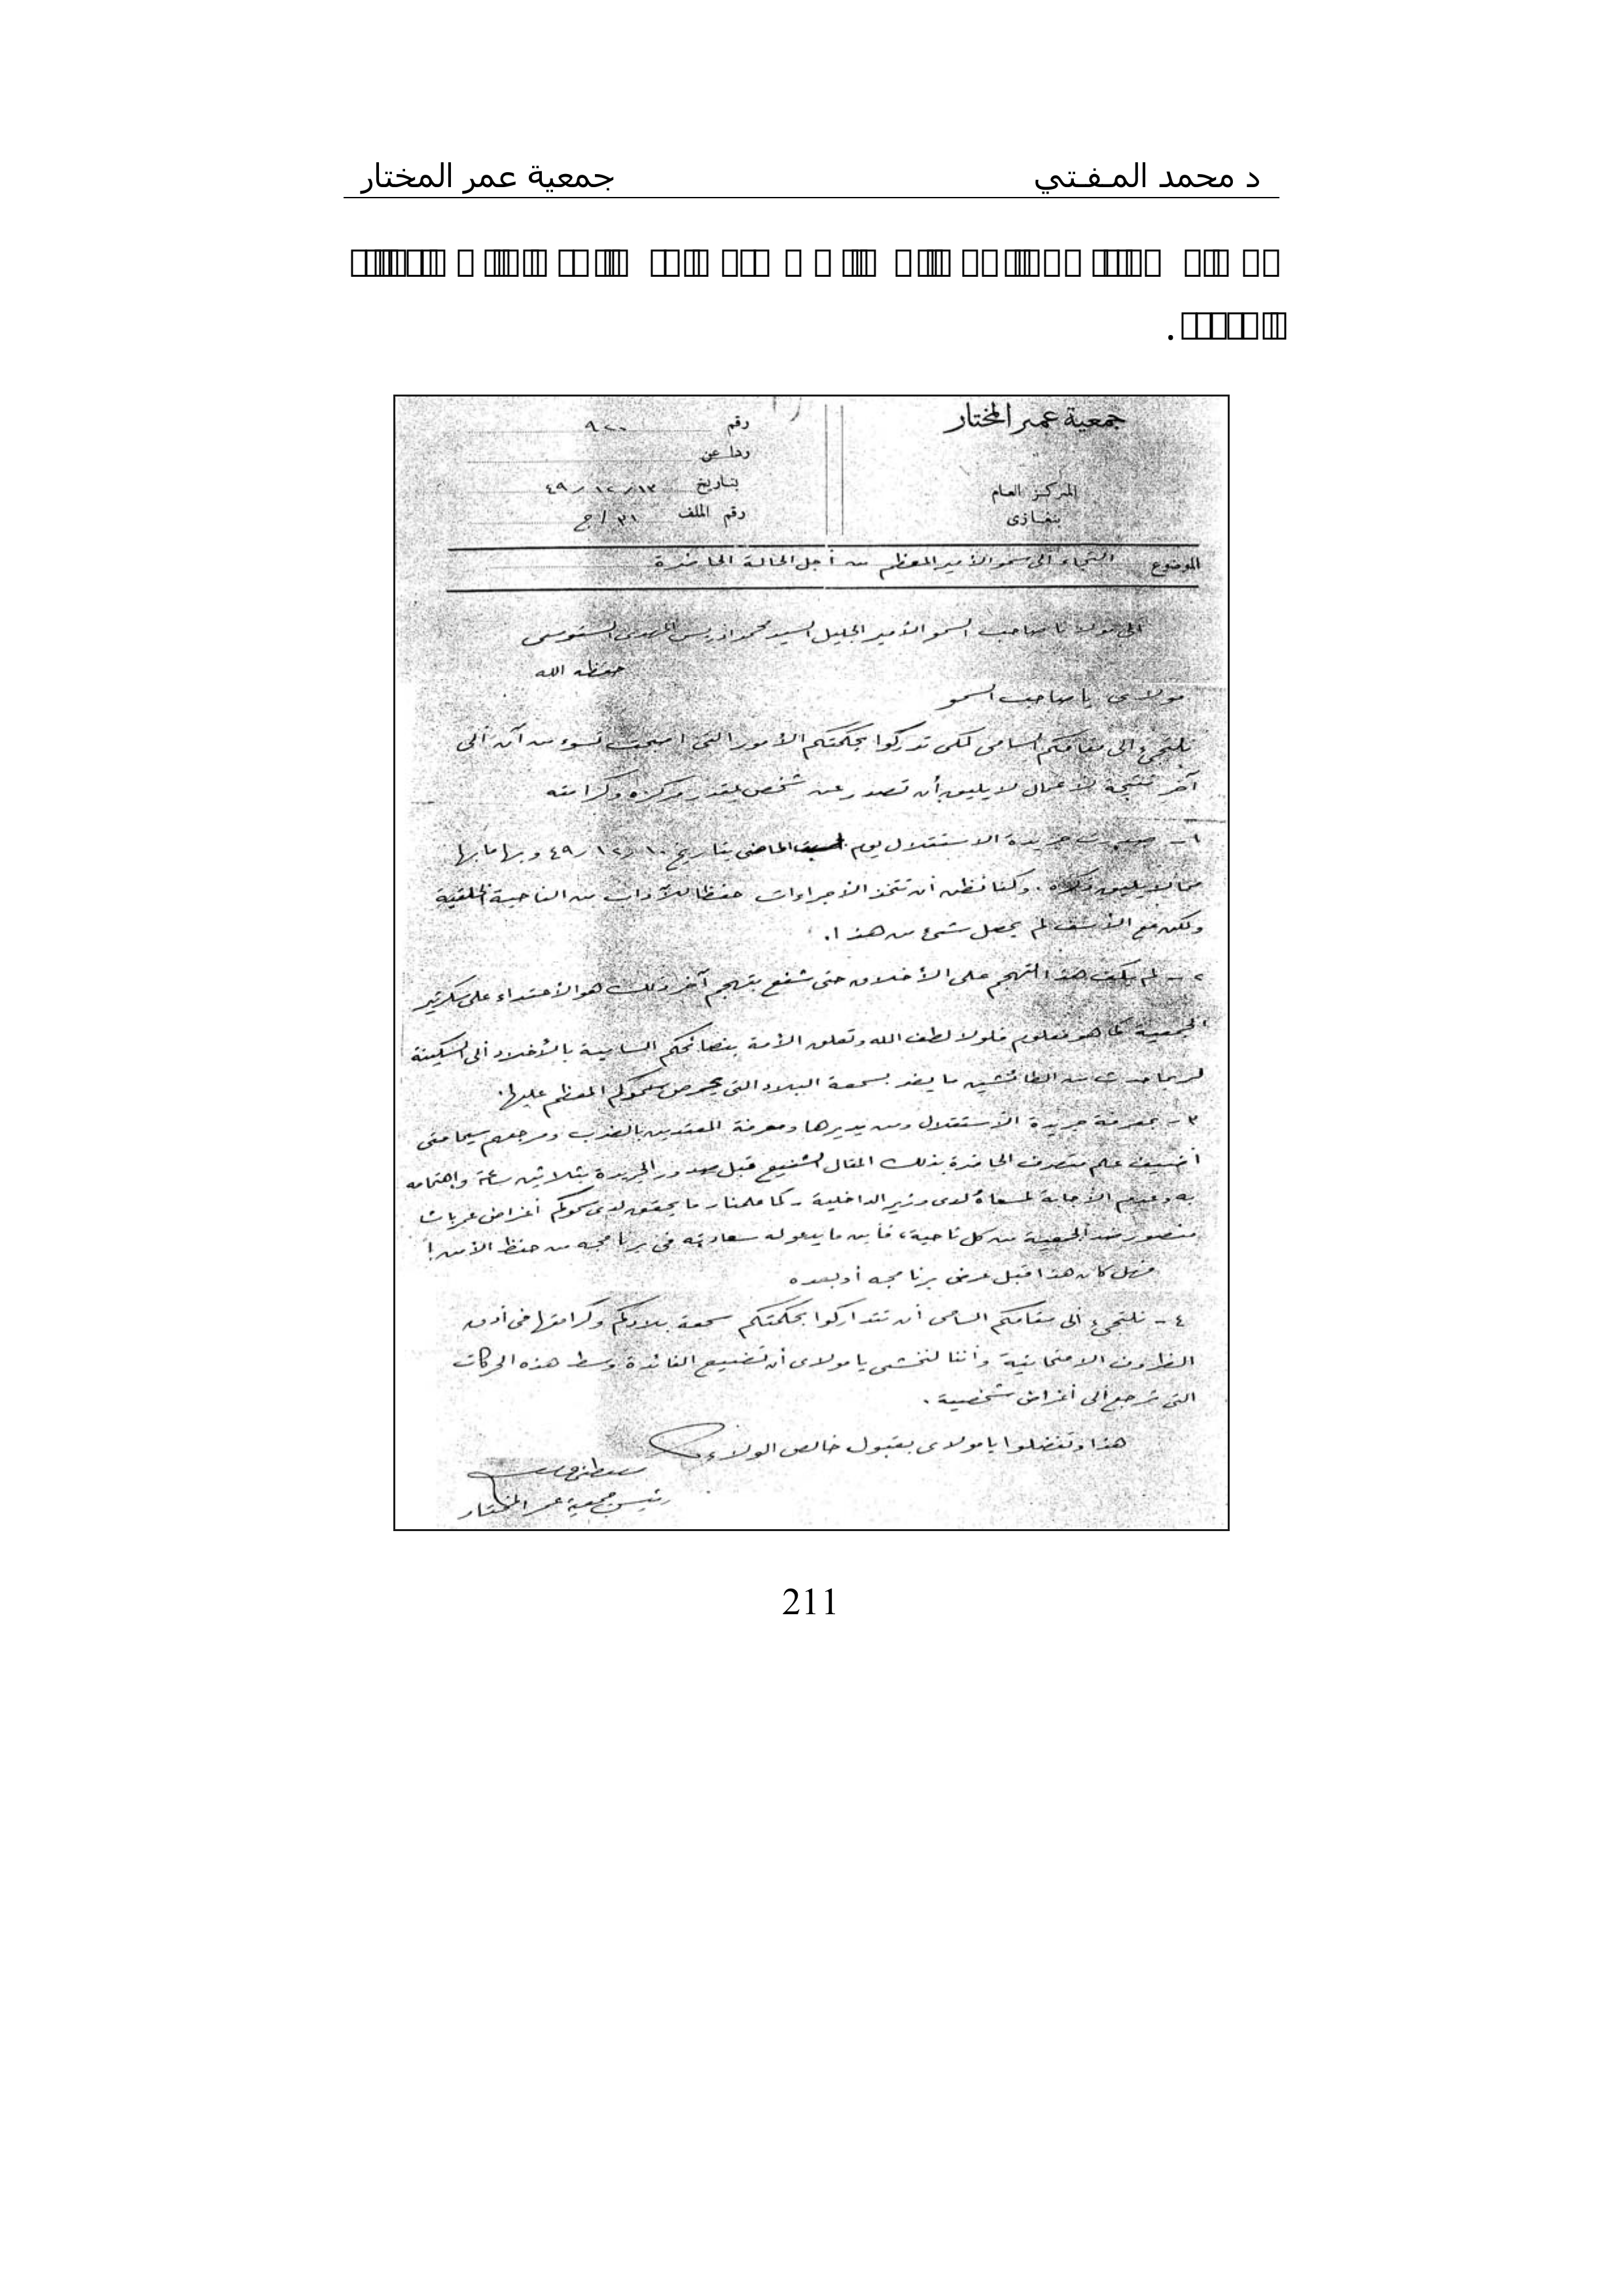 د محمد المـفـتي
جمعية عمر المختار
.
جمعية عمر المختار
المركز العام
بنغازى
رقم ٩٢٠
ردا عن
بتاريخ ١٣ / ١٢ / ٤٩
رقم الملف ٣١ / ج
الموضوع التجاء الى سمو الأمير المعظم من أجل الحالة الحاضرة
الى مولانا صاحب السمو الأمير الجليل السيد محمد ادريس المهدى السنوسى
حفظه الله
مولاى يا صاحب السمو
نلتجىء الى مقامكم السامى لكى تدركوا بحكمتكم الأمور التى اصبحت تسوء من آن الى
آخر نتيجة لأعمال لا يليق أن تصدر عن شخص يقدر مركزه وكرامته
١ - صدرت جريدة الاستقلال يوم السبت الماضى بتاريخ ١٠ / ١٢ / ٤٩ وبها ما بها
مما لا يليق ذكره . وكنا نظن أن تتخذ الأجراءات حفظا للآداب من الناحية الخلقية
ولكن مع الأسف لم يحصل شىء من هذا .
٢ - لم يكف هذا التهجم على الأخلاق حتى شفع بتهجم آخر ذلك هو الأعتداء على سكرتير
الجمعية كما هو معلوم فلولا لطف الله وتعلق الأمة بنصائحكم السامية بالأخلاد الى السكينة
لربما حدث من الطائشين ما يضر بسمعة البلاد التى يحرص سموكم المعظم عليها .
٣ - بمعرفة جريدة الاستقلال ومن يديرها ومعرفة المعتدين بالضرب ومرجعهم سيما متى
أضيف علم متصرف الحاضرة بذلك المقال الشنيع قبل صدور الجريدة بثلاثين ساعة واهتمامه
به وعدم الأجابة لمسعاه لدى وزير الداخلية - كما علمنا - ما يحقق لدى سموكم أغراض
منصور ضد الجمعية من كل ناحية ، فأين ما يدعو له سعادته فى برنامجه من حفظ الأمن !
فهل كان هذا قبل عرض برنامجه أو بعده
٤ - نلتجىء الى مقامكم السامى أن تتداركوا بحكمتكم سمعة بلادكم وكرامتها فى أدق
الظروف الامتحانية وأننا لنخشى يا مولاى أن تضيع الفائدة وسط هذه الحركات
التى ترجع الى أغراض شخصية .
هذا وتفضلوا يا مولاى بقبول خالص الولاء
مصطفى
رئيس جمعية عمر المختار
211